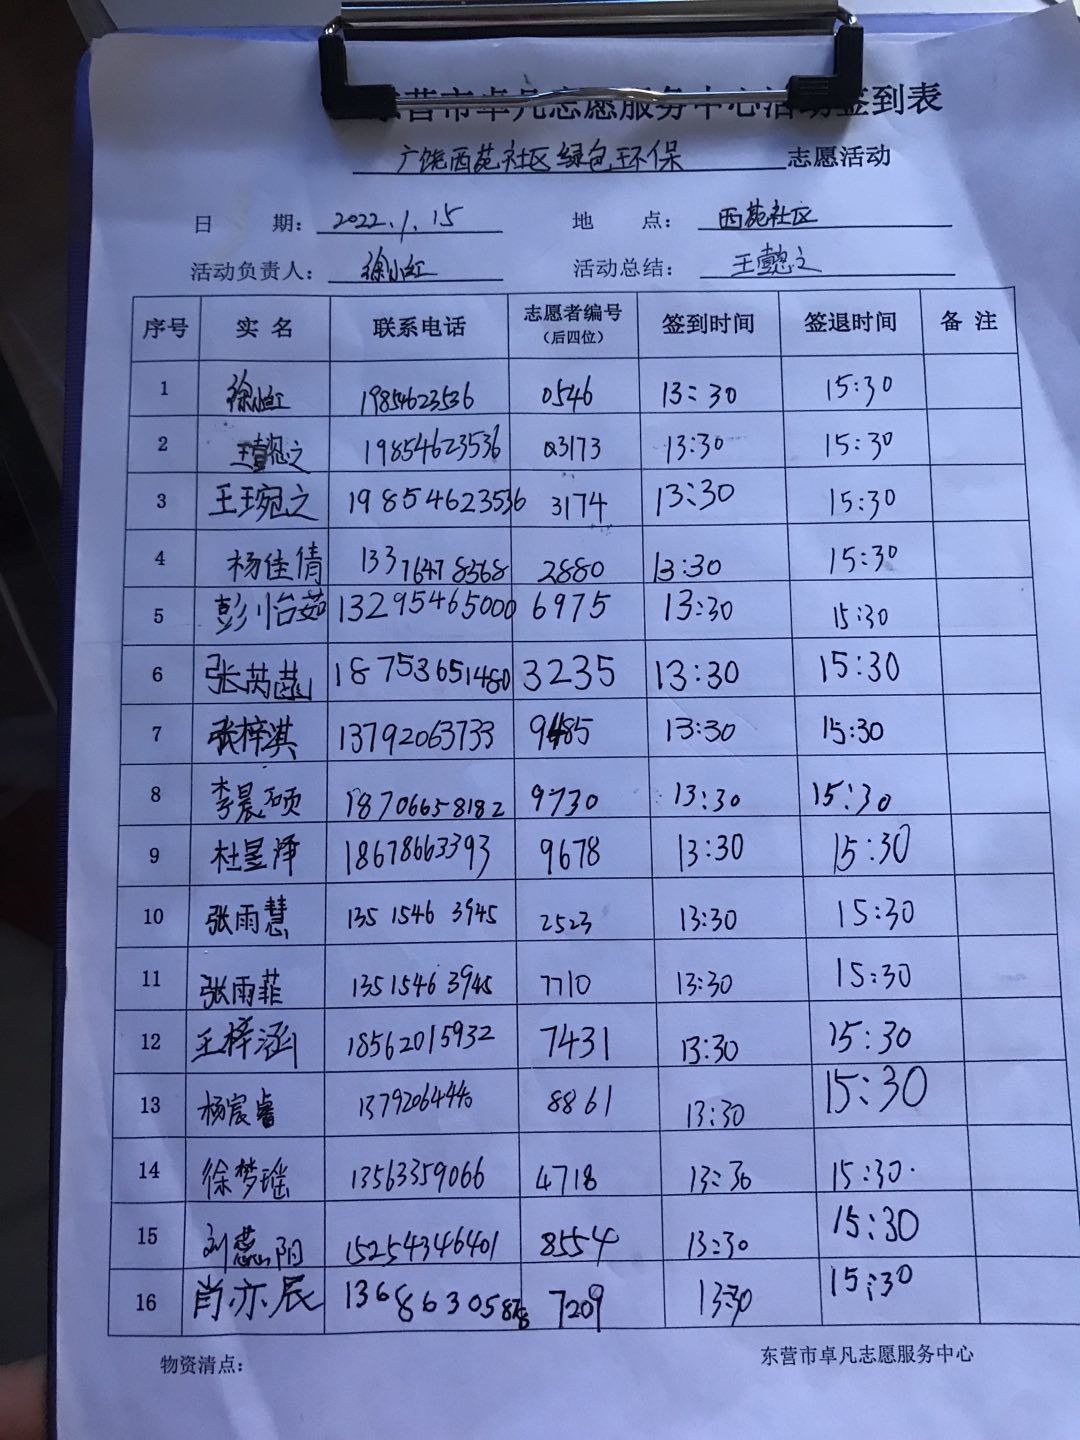 东营市卓凡志愿服务中心活动签到表
广饶西苑社区绿色环保 志愿活动
日 期: 2022.1.15 地 点: 西苑社区
活动负责人: 徐小红 活动总结: 王懿之
序号 实 名 联系电话 志愿者编号 (后四位) 签到时间 签退时间 备 注
1 徐小红 19854623536 0546 13:30 15:30
2 王懿之 19854623536 3173 13:30 15:30
3 王琬之 19854623536 3174 13:30 15:30
4 杨佳倩 13376478368 2880 13:30 15:30
5 彭川怡茹 13295465000 6975 13:30 15:30
6 张芮菡 18753651480 3235 13:30 15:30
7 张梓淇 13792063733 9485 13:30 15:30
8 李晨硕 18706658182 9730 13:30 15:30
9 杜昱泽 18678663393 9678 13:30 15:30
10 张雨慧 135 1546 3945 2523 13:30 15:30
11 张雨菲 135 1546 3945 7710 13:30 15:30
12 王梓涵 18562015932 7431 13:30 15:30
13 杨宸睿 8861 13:30 15:30
14 徐梦瑶 13563359066 4718 13:30 15:30
15 刘蕊阳 15254346401 8554 13:30 15:30
16 肖亦辰 7209 13:30 15:30
物资清点: 东营市卓凡志愿服务中心